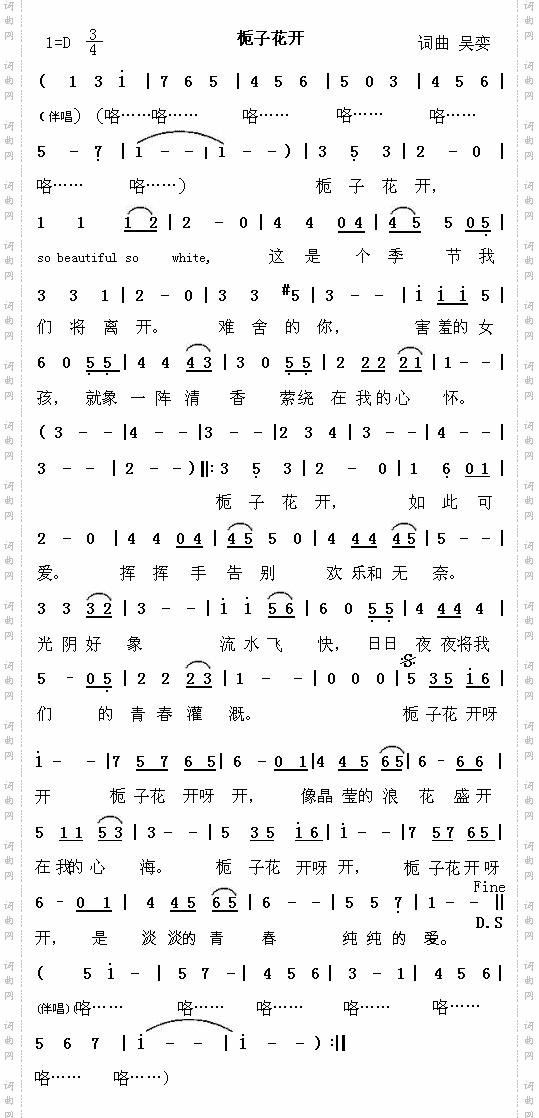 栀子花开
1=D 3/4 词曲 吴娈
( 1 3 i | 7 6 5 | 4 5 6 | 5 0 3 | 4 5 6 |
(伴唱) (咯……咯…… 咯…… 咯…… 咯……
5 - 7 | 1 - - | 1 - - ) | 3 5 3 | 2 - 0 |
咯…… 咯……) 栀 子 花 开,
1 1 1 2 | 2 - 0 | 4 4 0 4 | 4 5 5 0 5 |
so beautiful so white, 这 是 个 季 节 我
3 3 1 | 2 - 0 | 3 3 #5 | 3 - - | i i i 5 |
们 将 离 开。 难 舍 的 你, 害 羞的 女
6 0 5 5 | 4 4 4 3 | 3 0 5 5 | 2 2 2 2 1 | 1 - - |
孩, 就象 一 阵 清 香 萦绕 在 我 的 心 怀。
( 3 - - | 4 - - | 3 - - | 2 3 4 | 3 - - | 4 - - |
3 - - | 2 - - ) ‖: 3 5 3 | 2 - 0 | 1 6 0 1 |
栀 子 花 开, 如 此 可
2 - 0 | 4 4 0 4 | 4 5 5 0 | 4 4 4 4 5 | 5 - - |
爱。 挥 挥 手 告 别 欢 乐和 无 奈。
3 3 3 2 | 3 - - | i i 5 6 | 6 0 5 5 | 4 4 4 4 |
光 阴 好 象 流 水 飞 快, 日日 夜 夜将我
5 - 0 5 | 2 2 2 3 | 1 - - | 0 0 0 | 5 3 5 i 6 |
们 的 青 春 灌 溉。 栀 子花 开呀
i - - | 7 5 7 6 5 | 6 - 0 1 | 4 4 5 6 5 | 6 - 6 6 |
开 栀 子花 开呀 开, 像晶 莹的 浪 花 盛开
5 1 1 5 3 | 3 - - | 5 3 5 i 6 | i - - | 7 5 7 6 5 |
在 我的 心 海。 栀 子花 开呀 开, 栀 子花 开 呀
Fine
6 - 0 1 | 4 4 5 6 5 | 6 - - | 5 5 7 | 1 - - ‖
D.S
开, 是 淡 淡的 青 春 纯 纯 的 爱。
( 5 i - | 5 7 - | 4 5 6 | 3 - 1 | 4 5 6 |
(伴唱) (咯…… 咯…… 咯…… 咯…… 咯……
5 6 7 | i - - | i - - ) :‖
咯…… 咯……)